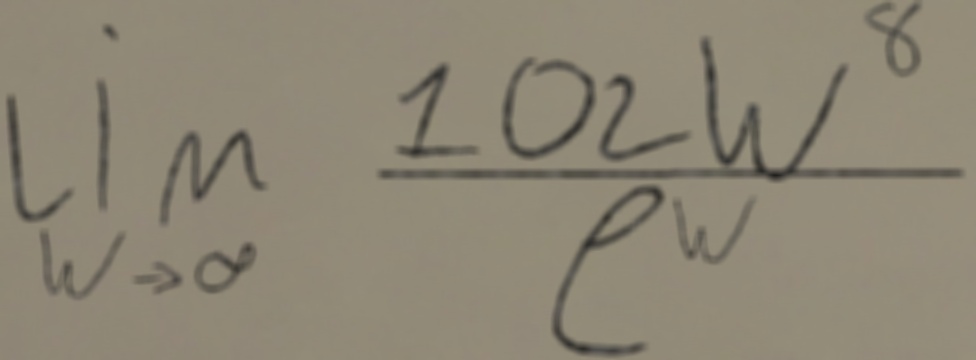 \lim_{w \to \infty} \frac{102w^8}{e^w}